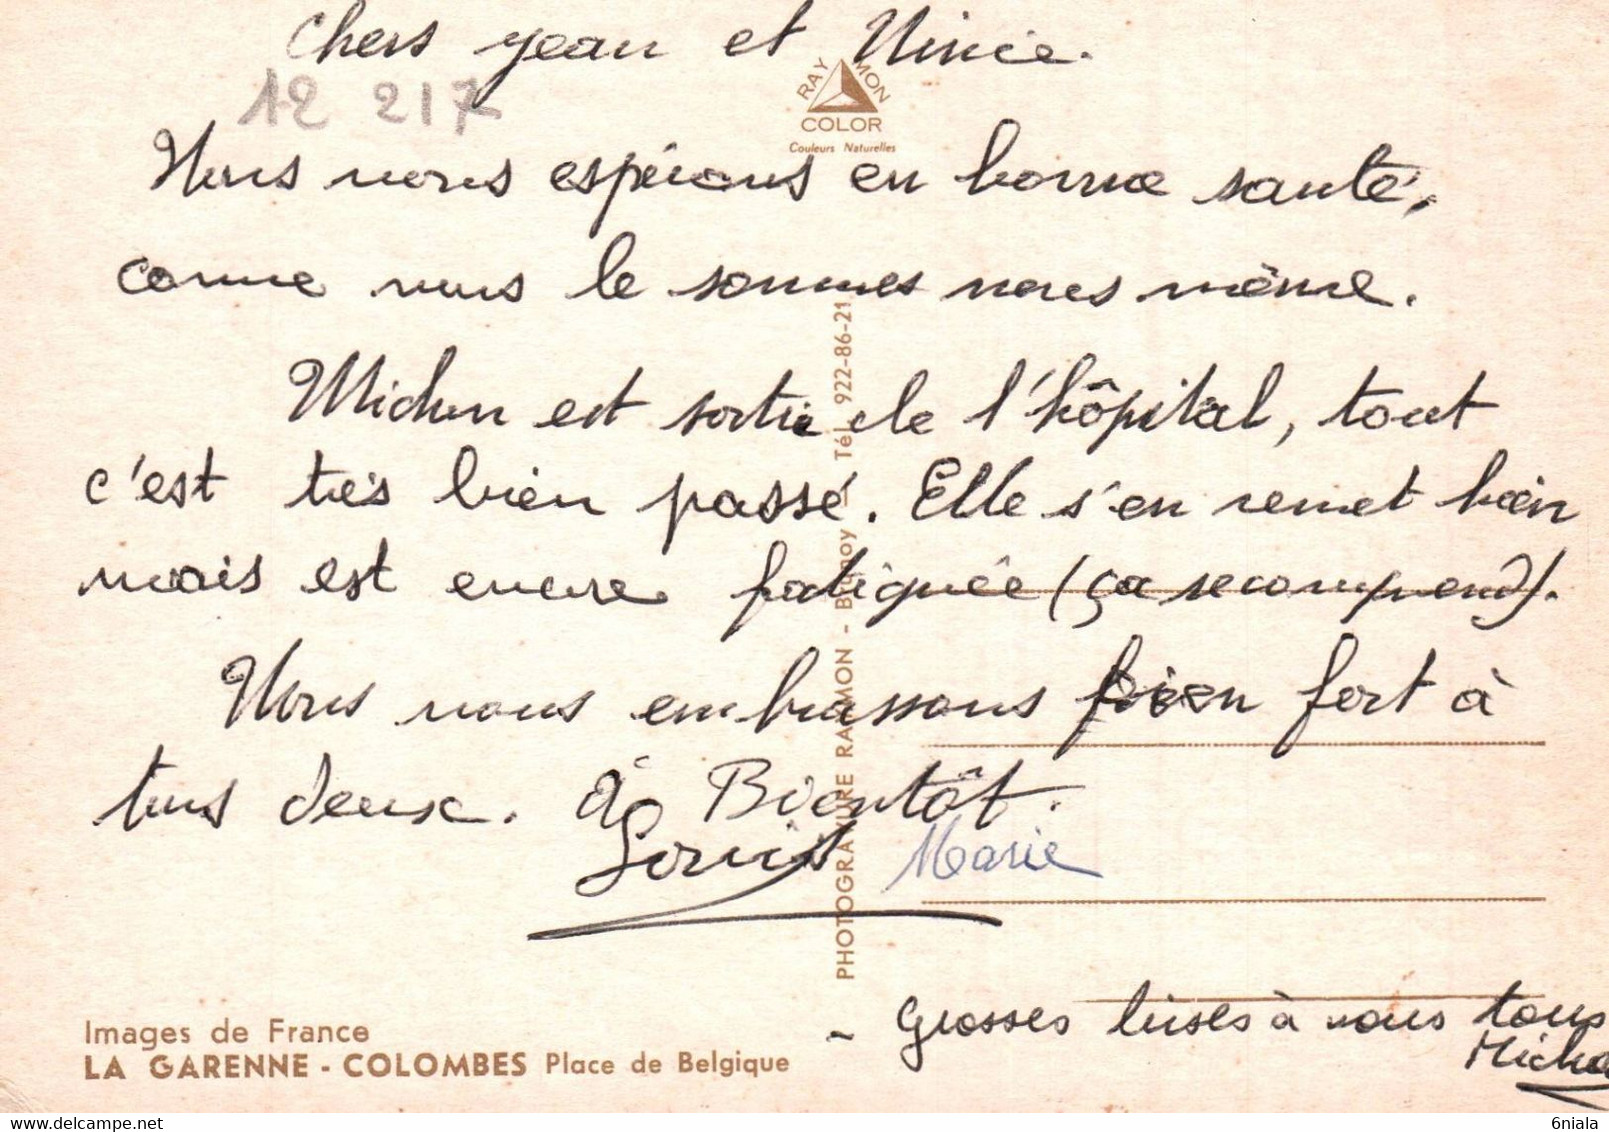 Chers Jean et Ninie.
12 217
RAYMON
COLOR
Couleurs Naturelles
Nous vous espérons en bonne santé,
comme nous le sommes nous même.
Michou est sortie de l'hôpital, tout
c'est très bien passé. Elle s'en remet bien
mais est encore fatiguée (ça se comprend).
Nous vous embrassons bien fort à
tous deux. à Bientôt.
Louis Marie
PHOTOGRAVURE RAYMON - Brunoy - Tél. 922-86-21
- Grosses bises à vous tous
Images de France
LA GARENNE - COLOMBES Place de Belgique
6niala